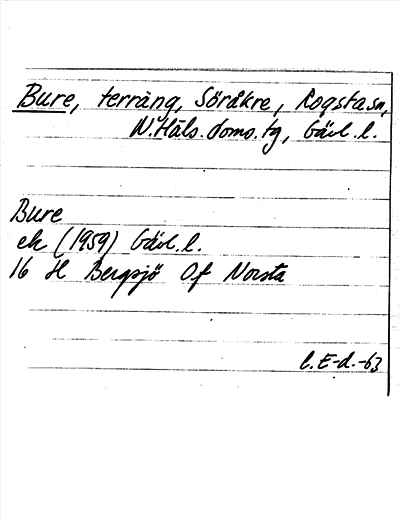 Bure, terräng, Söråkre, Rogsta sn,
N. Häls. doms. tg, Gävl. l.
Bure
ek (1959) Gävl. l.
16 H Bergsjö Of Norsta
C. E-d. -63